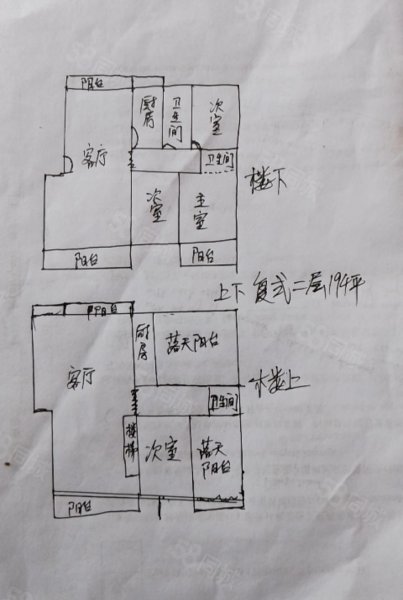 阳台
厨房
卫生间
次室
客厅
卫生间
楼下
次室
主室
阳台
阳台
上下复式二层194平
阳台
厨房
蓝天阳台
客厅
卫生间
楼上
楼梯
次室
蓝天阳台
阳台